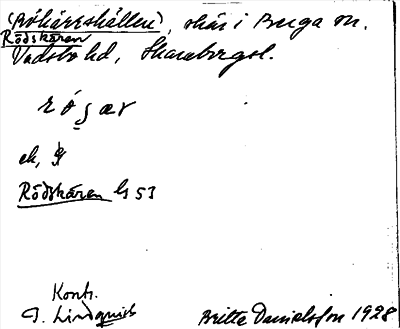 (Rökäreskällen), skär i Berga sn.
Rödskären
Vadsbo hd, Skaraborgsl.
rósær
ek,
Rödskären Gs 53
Kontr.
I. Lindquist Britte Danielsson 1928